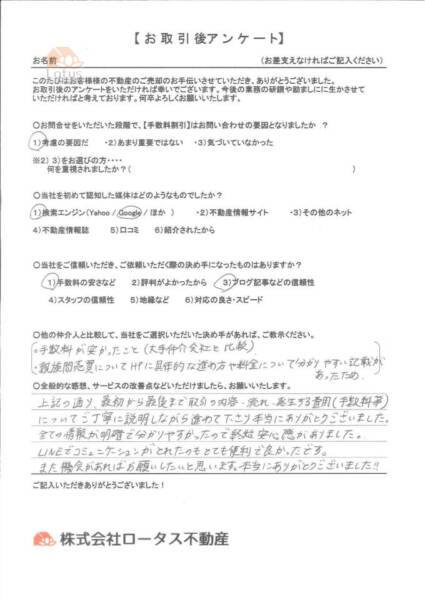 Lotus
【お取引後アンケート】
お名前 (お差支えなければご記入ください)
このたびはお客様様の不動産のご売却のお手伝いさせていただき、ありがとうございました。
お取引後のアンケートをいただければ幸いでございます。今後の業務の研鑽や励ましにに生かさせて
いただければと考えております。何卒よろしくお願いいたします。
〇お問合せをいただいた段階で、【手数料割引】はお問い合わせの要因となりましたか ?
1)考慮の要因だ ・2)あまり重要ではない ・3)気づいていなかった
※2) 3)をお選びの方・・・・
何を重視されましたか?( )
〇当社を初めて認知した媒体はどのようなものでしたか?
1)検索エンジン(Yahoo / Google / ほか ) ・2)不動産情報サイト ・3)その他のネット
4)不動産情報誌 5)口コミ 6)紹介されたから
〇当社をご信頼いただき、ご依頼いただく際の決め手になったものはありますか?
1)手数料の安さなど 2)評判がよかったから 3)ブログ記事などの信頼性
4)スタッフの信頼性 5)地縁など 6)対応の良さ・スピード
〇他の仲介人と比較して、当社をご選択いただいた決め手があれば、ご教示ください。
・手数料が安かったこと(大手仲介会社と比較)
・親族間売買についてHPに具体的な進め方や料金について分かりやすい記載が
あったため。
〇全般的な感想、サービスの改善点などいただけましたら、お願いいたします。
上記の通り、最初から最後まで取引の内容・流れ・発生する費用(手数料等)
についてご丁寧に説明しながら進めて下さり本当にありがとうございました。
全ての情報が明確で分かりやすかったので終始安心感がありました。
LINEでコミュニケーションがとれたのもとても便利で良かったです。
また機会があればお願いしたいと思います。本当にありがとうございました!!
ご記入いただきありがとうございました!
株式会社ロータス不動産